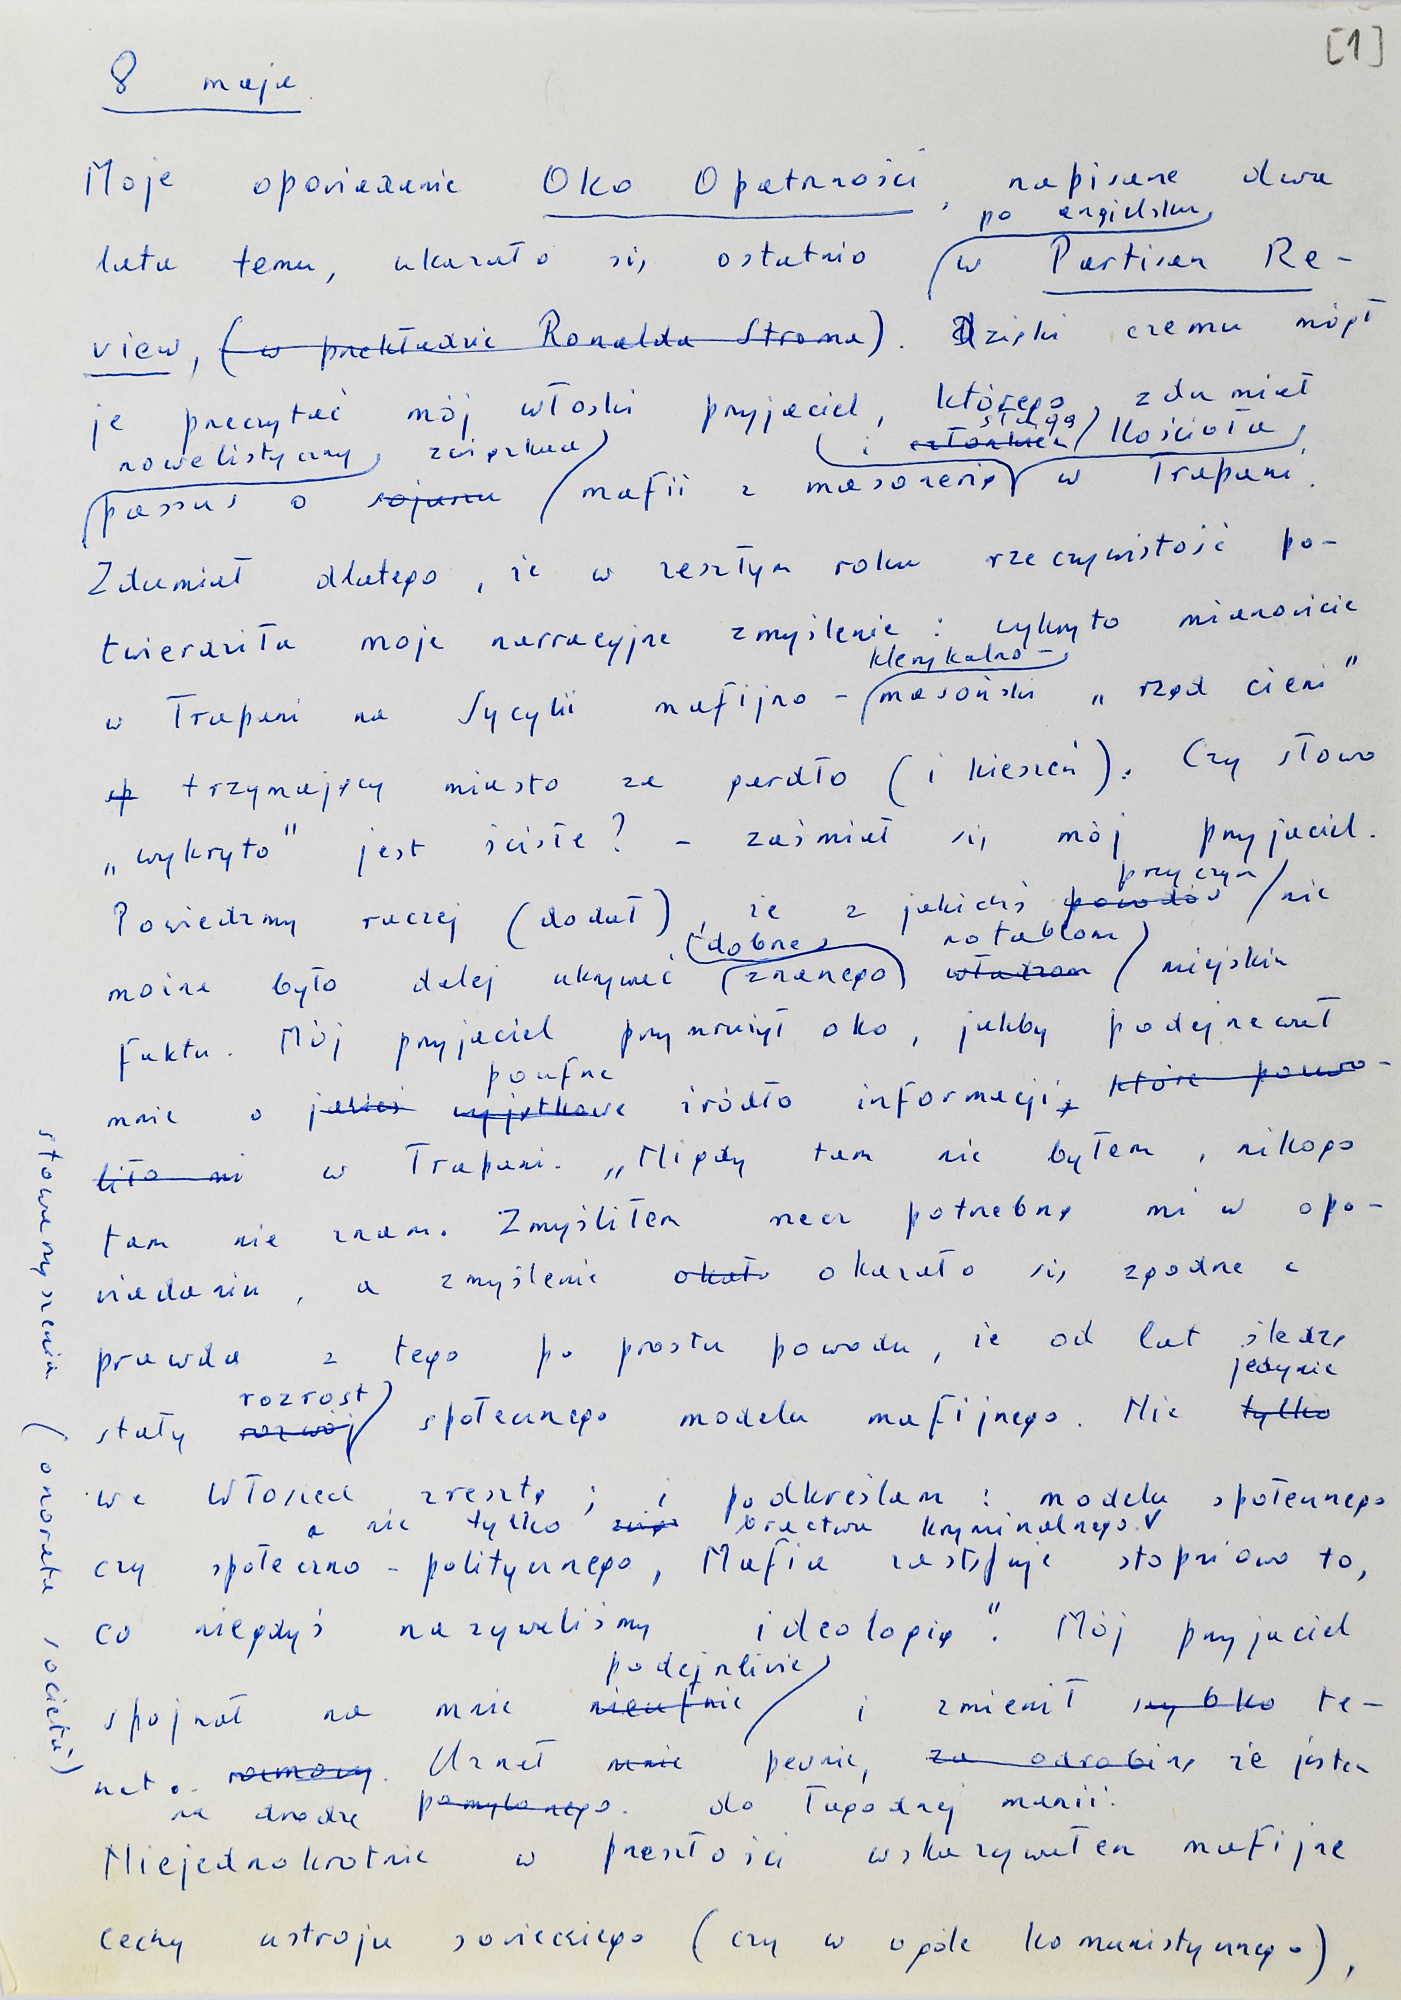 [1]
8 maja
Moje opowiadanie Oko Opatrzności, napisane dwa
po angielsku
lata temu, ukazało się ostatnio w Partisan Re-
view, (w przekładzie Ronalda Stroma). Dzięki czemu mógł
je przeczytać mój włoski przyjaciel, którego zdumiał
nowelistyczny związkach i członkiem sługą Kościoła
passus o sojuszu mafii z masonerią w Trapani.
Zdumiał dlatego, że w zeszłym roku rzeczywistość po-
twierdziła moje narracyjne zmyślenie: wykryto mianowicie
klerykalno-
w Trapani na Sycylii mafijno-masoński „rząd cieni"
trzymający miasto za gardło (i kieszeń). Czy słowo
„wykryto" jest ścisłe? - zaśmiał się mój przyjaciel.
przyczyn
Powiedzmy raczej (dodał), że z jakichś powodów nie
dobrze notablom
można było dalej ukrywać znanego władzom miejskim
faktu. Mój przyjaciel przymrużył oko, jakby podejrzewał
poufne
mnie o jakieś wyjątkowe źródło informacji, które pozwo-
liło mi w Trapani. „Nigdy tam nie byłem, nikogo
tam nie znam. Zmyśliłem rzecz potrzebną mi w opo-
wiadaniu, a zmyślenie okało okazało się zgodne z
prawdą z tego po prostu powodu, że od lat śledzę
rozrost jedynie
stały rozwój społecznego modelu mafijnego. Nie tylko
we Włoszech zresztą; i podkreślam: modelu społecznego
a nie tylko bractwa kryminalnego.
czy społeczno-politycznego, Mafia zastępuje stopniowo to,
co niegdyś nazywaliśmy ideologią". Mój przyjaciel
podejrzliwie
spojrzał na mnie nieufnie i zmienił szybko te-
mat. rozmowy. Uznał mnie pewnie, za odrobinę że jestem
na drodze pomylonego. do łagodnej manii.
Niejednokrotnie w przeszłości wskazywałem mafijne
cechy ustroju sowieckiego (czy w ogóle komunistycznego),
stowarzyszenia (onorata società)